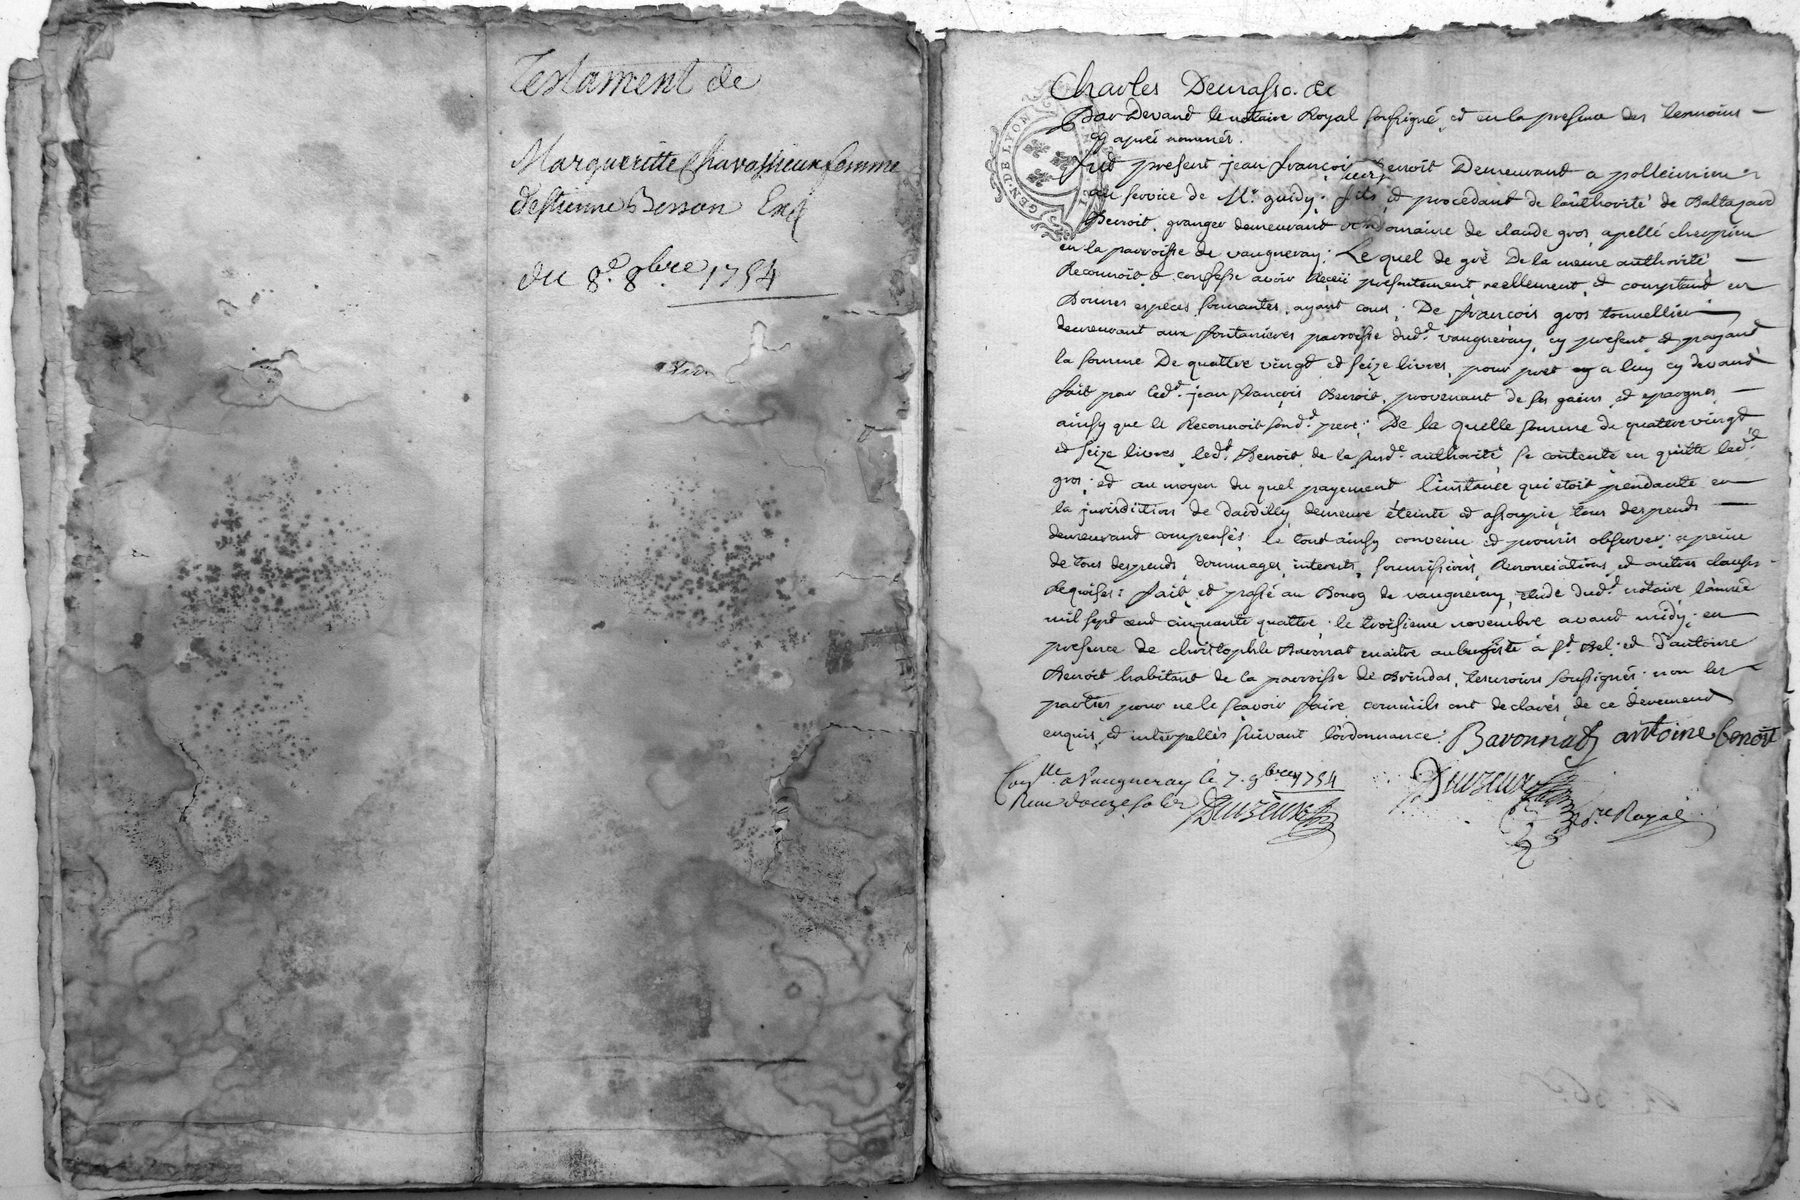 Testament de
Margueritte Chavassieux femme
d'Estienne Besson
du 8.e 8bre. 1754
GEN. DE LYON
Charles
Par Devand le notaire Royal soussigné, et en la presence des temoins
cy aprés nommés.
fut present jean françois Benoit Demeurant a pollemieu
au service de Mr. guidy. fils et procédant de l'authorité de Baltazard
Benoit, granger demeurant domaine de claude gros apellé
en la parroisse de vaugneray; Le quel de gré De la meme authorité
Reconnoit et confesse avoir Receü presentement, reellement, et comptant en
Bonnes especes sonnantes, ayant cours; De françois gros tonnellier
demeurant aux fontanieres parroisse dud.t vaugneray, cy present et payant
la somme De quattre vingt et seize livres, pour pret a luy cy devant
fait par led.t jean françois Benoit, provenant de ses gains et epargnes
ainsy que le Reconnoit sond.t pere; De la quelle somme de quattre vingt
et seize livres, led.t Benoit de la susd.e authorité se contente en quitte led.t
gros; et au moyen du quel payement l'instance qui étoit pendante en
la jurisdiction de dardilly demeure éteinte et assoupie tous despends
demeurant compensés; le tout ainsy convenu et promis observer a peine
de tous despends, dommages, interets, soumissions, Renonciations, et autres clauses
Requises: fait et passé au Bourg de vaugneray, étude dud.t notaire l'année
mil sept cent cinquante quattre le troisieme novembre avant midy; en
presence de christophle Bavonnat maitre aubergiste à St. Bel; et d'antoine
Benoit habitant de la parroisse de Brindas, temoins soussignés non les
parties pour ne le scavoir faire comm'ils ont declarés de ce deuement
enquis et interpellés suivant l'ordonnance: Bavonnat antoine benoit
Con.lle a Vaugneray le 7. 9bre 1754
Reçu douze sols Duvzeux
Duvzeux
N.re Royal